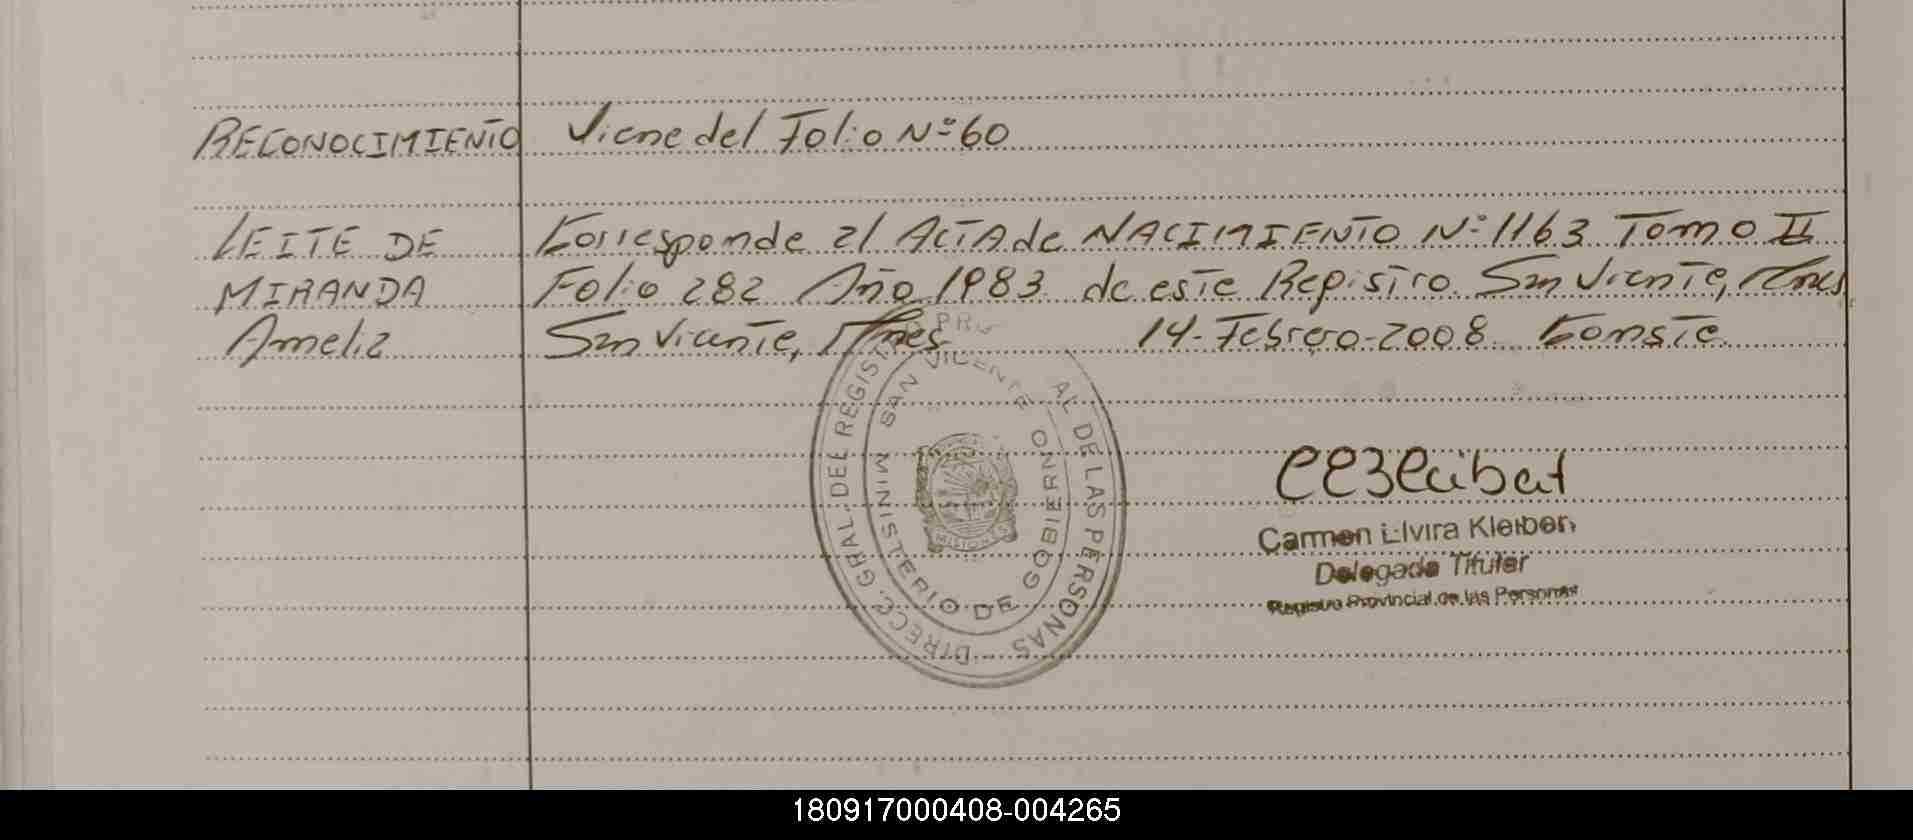 RECONOCIMIENTO Viene del Folio Nº 60
LEITE DE Corresponde al ACTA de NACIMIENTO Nº 1163 Tomo II
MIRANDA Folio 282 Año 1983 de este Registro San Vicente, Mnes
Amelia San Vicente, Mnes 14-Febrero-2008 Conste.
DIRECC. GRAL. DEL REGIST PRO AL DE LAS PERSONAS
SAN VICENTE
MINISTERIO DE GOBIERNO
MISIONES
Carmen Elvira Kleiber
Delegada Titular
Registro Provincial de las Personas
180917000408-004265